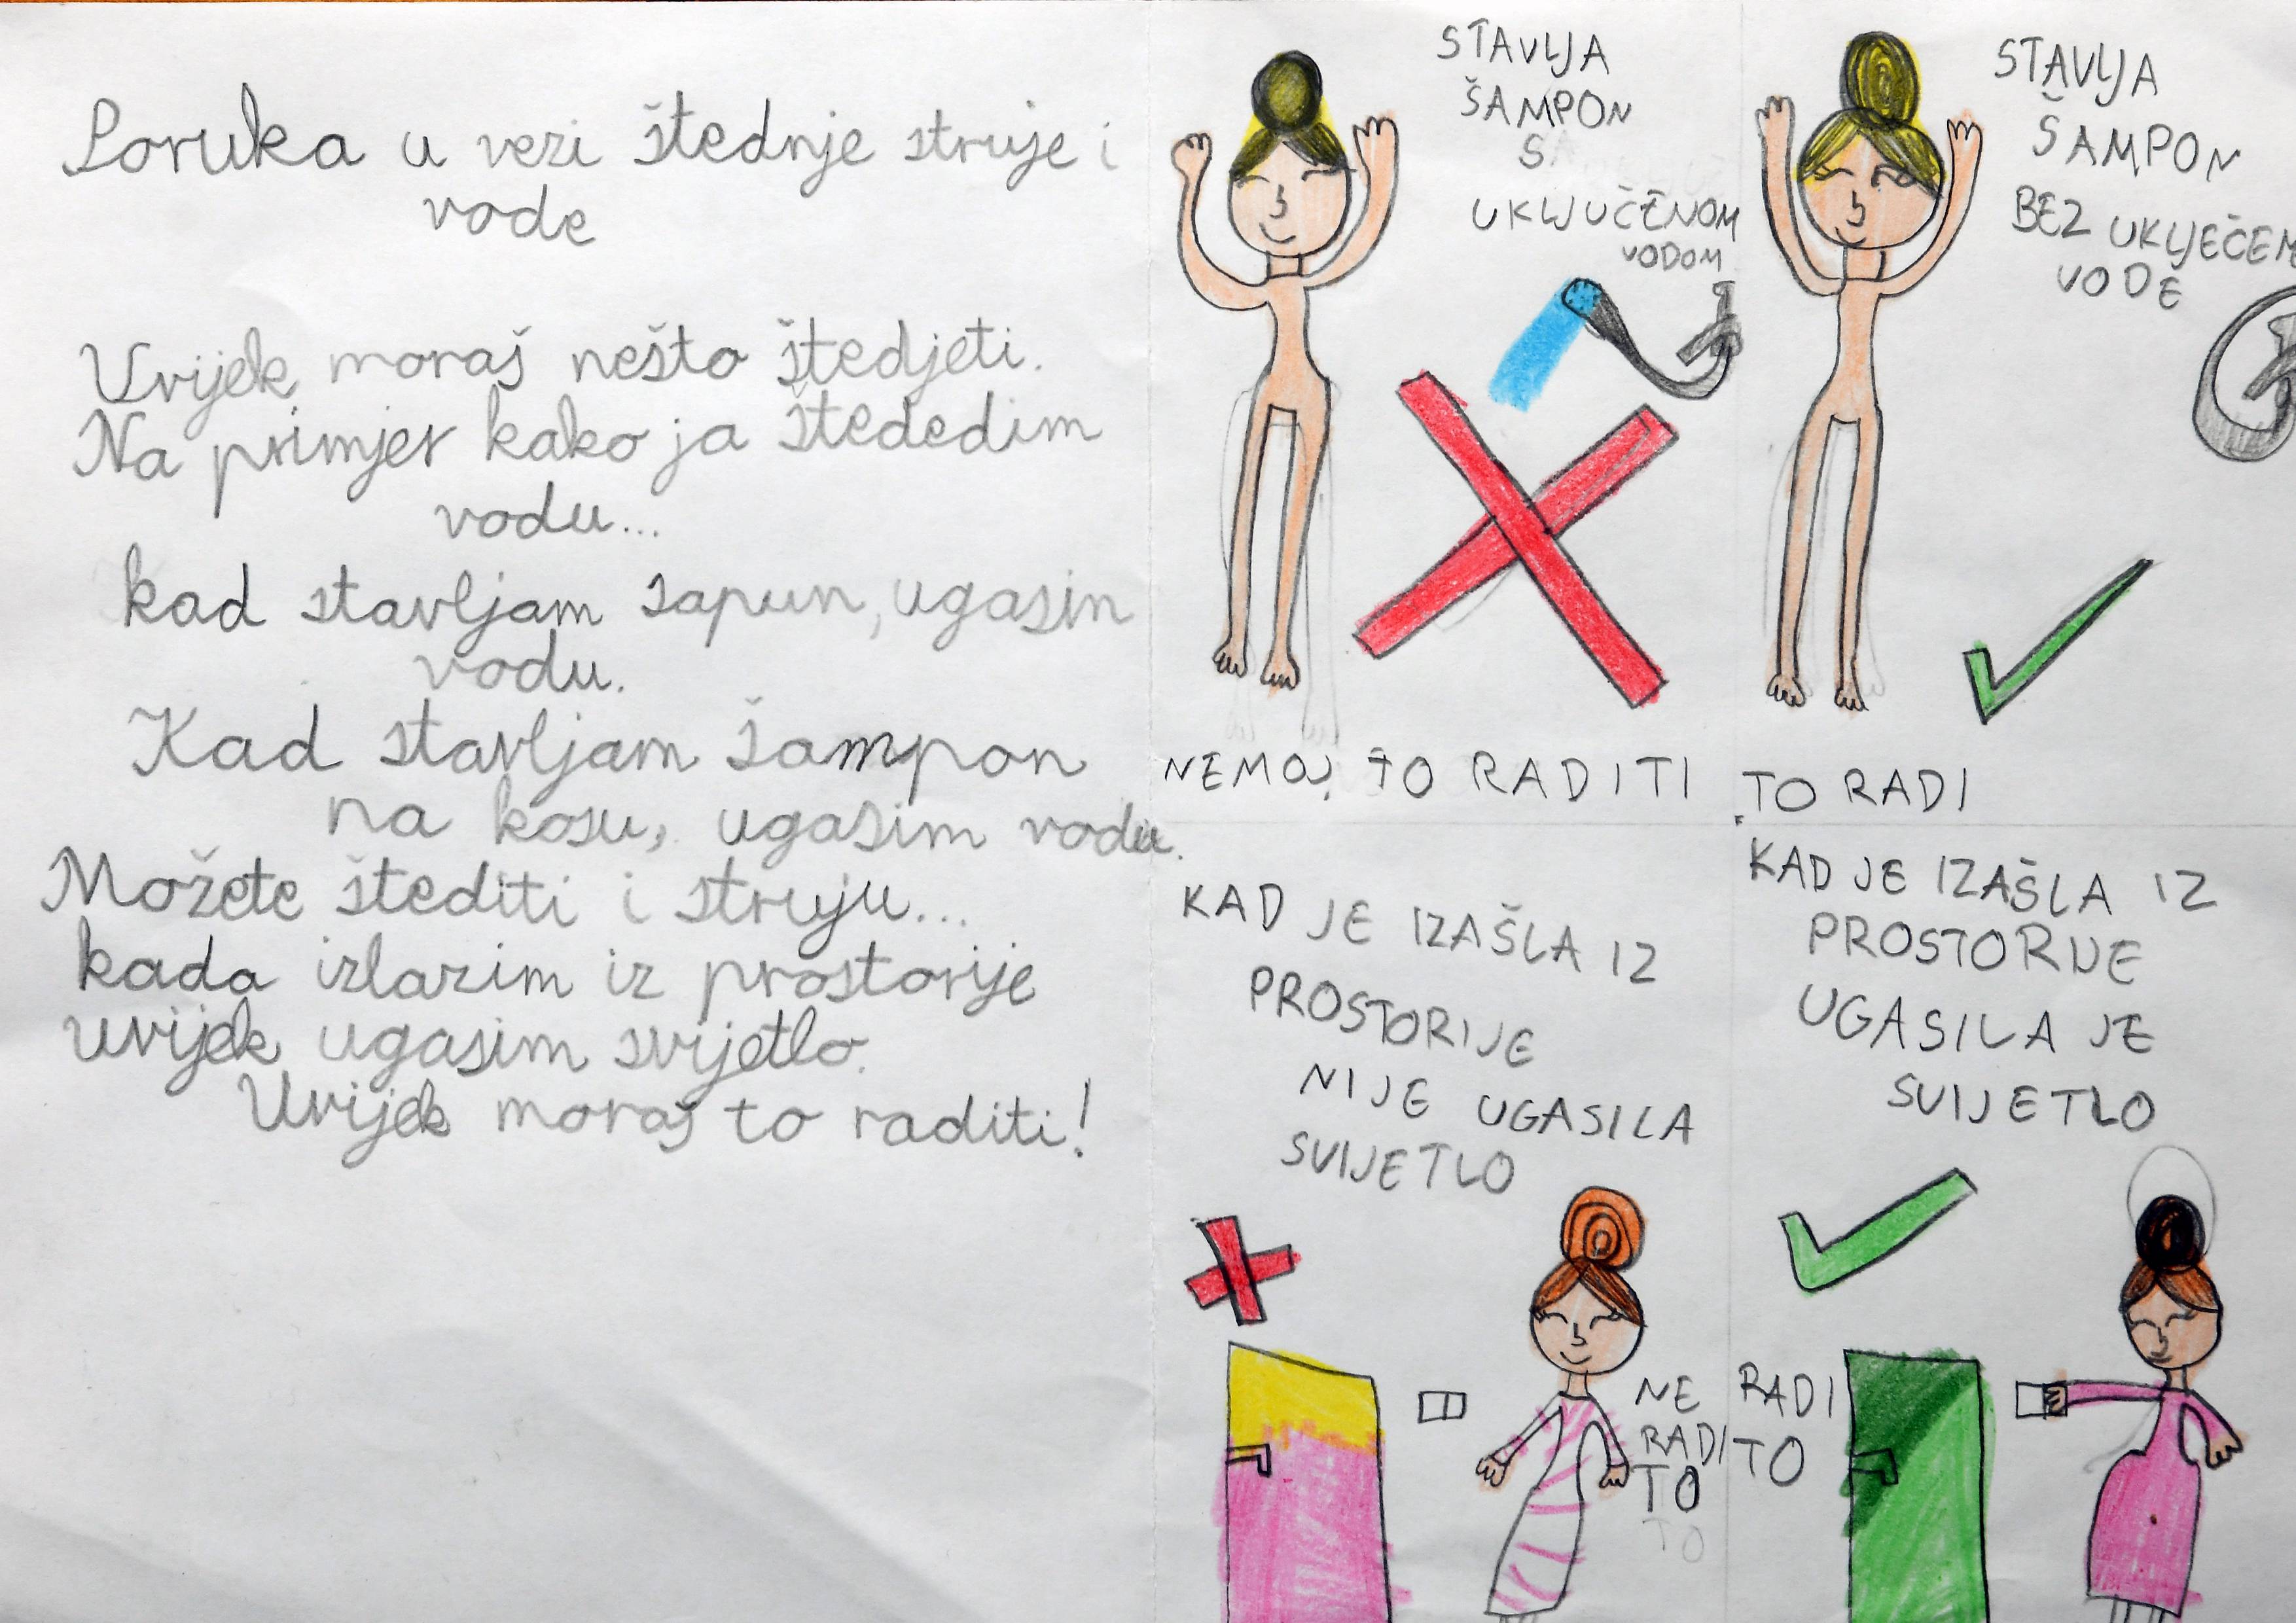 Poruka u vezi štednje struje i
vode
Uvijek moraš nešto štedjeti.
Na primjer kako ja štededim
vodu...
kad stavljam sapun, ugasin
vodu.
Kad stavljam šampon
na kosu, ugasim vodu.
Možete štediti i struju...
kada izlazim iz prostorije
uvijek ugasim svijetlo.
Uvijek moraš to raditi!
STAVLJA
ŠAMPON
S
UKLJUČENOM
VODOM
NEMOJ TO RADITI
STAVLJA
ŠAMPON
BEZ UKLJEČENE
VODE
TO RADI
KAD JE IZAŠLA IZ
PROSTORIJE
NIJE UGASILA
SVIJETLO
NE
RADI
TO
TO
KAD JE IZAŠLA IZ
PROSTORIJE
UGASILA JE
SVIJETLO
RADI
TO